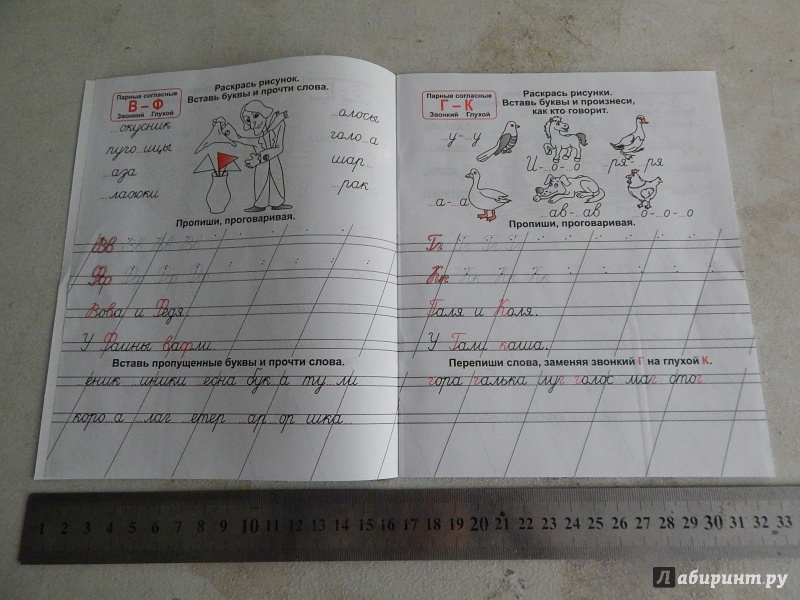 Парные согласные
В – Ф
Звонкий Глухой
Раскрась рисунок.
Вставь буквы и прочти слова.
...окусник
пуго...ицы
...аза
...ложки
...олосы
голо...а
шар...
...рак
Пропиши, проговаривая.
Вв Вв Вв Вв
Фф Фф Фф Фф
Вова и Федя.
У Фаины вафли.
Вставь пропущенные буквы и прочти слова.
...еник ...иники ...една бук...а ту...ли
коро...а ...лаг ...етер ...ар...ор шка...
Парные согласные
Г – К
Звонкий Глухой
Раскрась рисунки.
Вставь буквы и произнеси,
как кто говорит.
...у-...у
И-...о-...о
...ря-...ря
...а-...а
...ав-...ав
...о-...о-...о
Пропиши, проговаривая.
Гг Гг Гг Гг
Кк Кк Кк Кк
Галя и Коля.
У Гали каша.
Перепиши слова, заменяя звонкий Г на глухой К.
гора галька луг голос маг стог
1 2 3 4 5 6 7 8 9 10 11 12 13 14 15 16 17 18 19 20 21 22 23 24 25 26 27 28 29 30 31 32 33
Лабиринт.ру